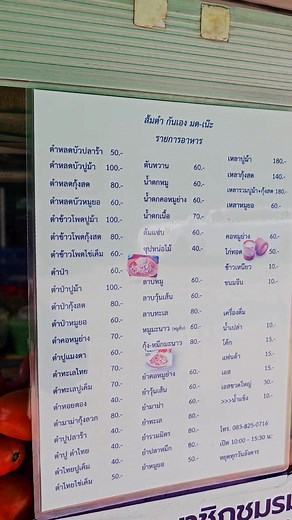 ส้มตำ กันเอง มด-เน๊ะ
รายการอาหาร
ตำหลดบัวปลาร้า 50.-
ตำหลดบัวปูม้า 100.-
ตำหลดกุ้งสด 80.-
ตำหลดบัวหมูยอ 60.-
ตำข้าวโพดปูม้า 100.-
ตำข้าวโพดกุ้งสด 80.-
ตำข้าวโพดไข่เค็ม 60.-
ตำป่า 60.-
ตำปูม้า 100.-
ตำป่ากุ้งสด 80.-
ตำป่าหมูยอ 60.-
ตำคอหมูย่าง 70.-
ตำปูแมงดา 60.-
ตำทะเลไทย 70.-
ตำทะเลปูเค็ม 70.-
ตำหอยดอง 40.-
ตำมาม่ากุ้งลวก 80.-
ตำปูปลาร้า 40.-
ตำปู ตำไทย 40.-
ตำไทยปูเค็ม 50.-
ตำไทยไข่เค็ม 50.-
ตับหวาน 60.-
น้ำตกหมู 60.-
น้ำตกคอหมูย่าง 60.-
น้ำตกเนื้อ 70.-
ต้มแซ่บ 60.-
ซุปหน่อไม้ 40.-
ลาบหมู 60.-
ลาบวุ้นเส้น 60.-
ลาบทะเล 80.-
หมูมะนาว 70.-
กุ้ง-หมึกมะนาว 80.-
ยำคอหมูย่าง 60.-
ยำวุ้นเส้น 60.-
ยำมาม่า 60.-
ยำทะเล 80.-
ยำรวมมิตร 80.-
ยำปลาหมึก 80.-
ยำหมูยอ 50.-
เหลาปูม้า 180.-
เหลากุ้งสด 140.-
เหลารวมปูม้า+กุ้งสด 180.-
เหลาหมูยอ 60.-
คอหมูย่าง 60.-
ไก่ทอด 50.-
ข้าวเหนียว 10.-
ขนมจีน 10.-
เครื่องดื่ม
น้ำเปล่า 10.-
โค๊ก 15.-
แฟนต้า 15.-
เอส 15.-
เอสขวดใหญ่ 30.-
>>>น้ำแข็ง 10.-
โทร. 083-825-0716
เปิด 10:00 - 15:30 น.
หยุดทุกวันอังคาร